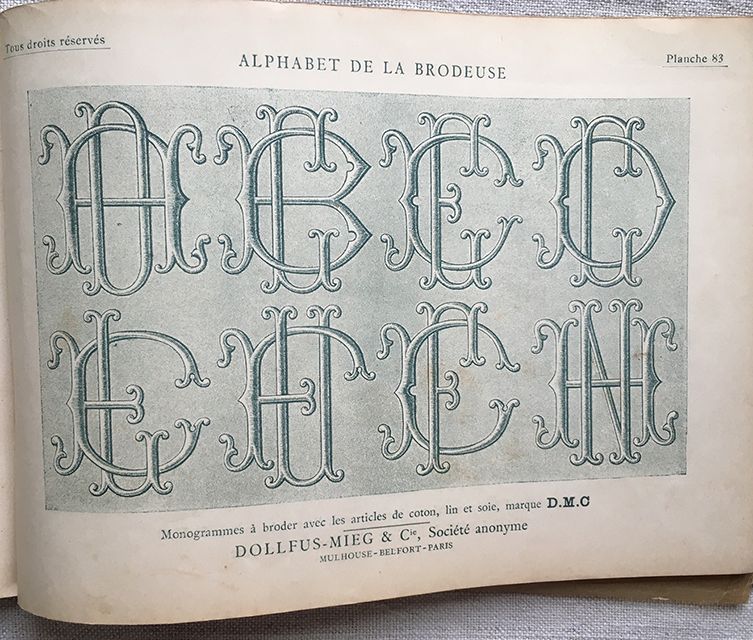 Tous droits réservés
ALPHABET DE LA BRODEUSE
Planche 83
Monogrammes à broder avec les articles de coton, lin et soie, marque D.M.C
DOLLFUS-MIEG & Cie, Société anonyme
MULHOUSE-BELFORT-PARIS